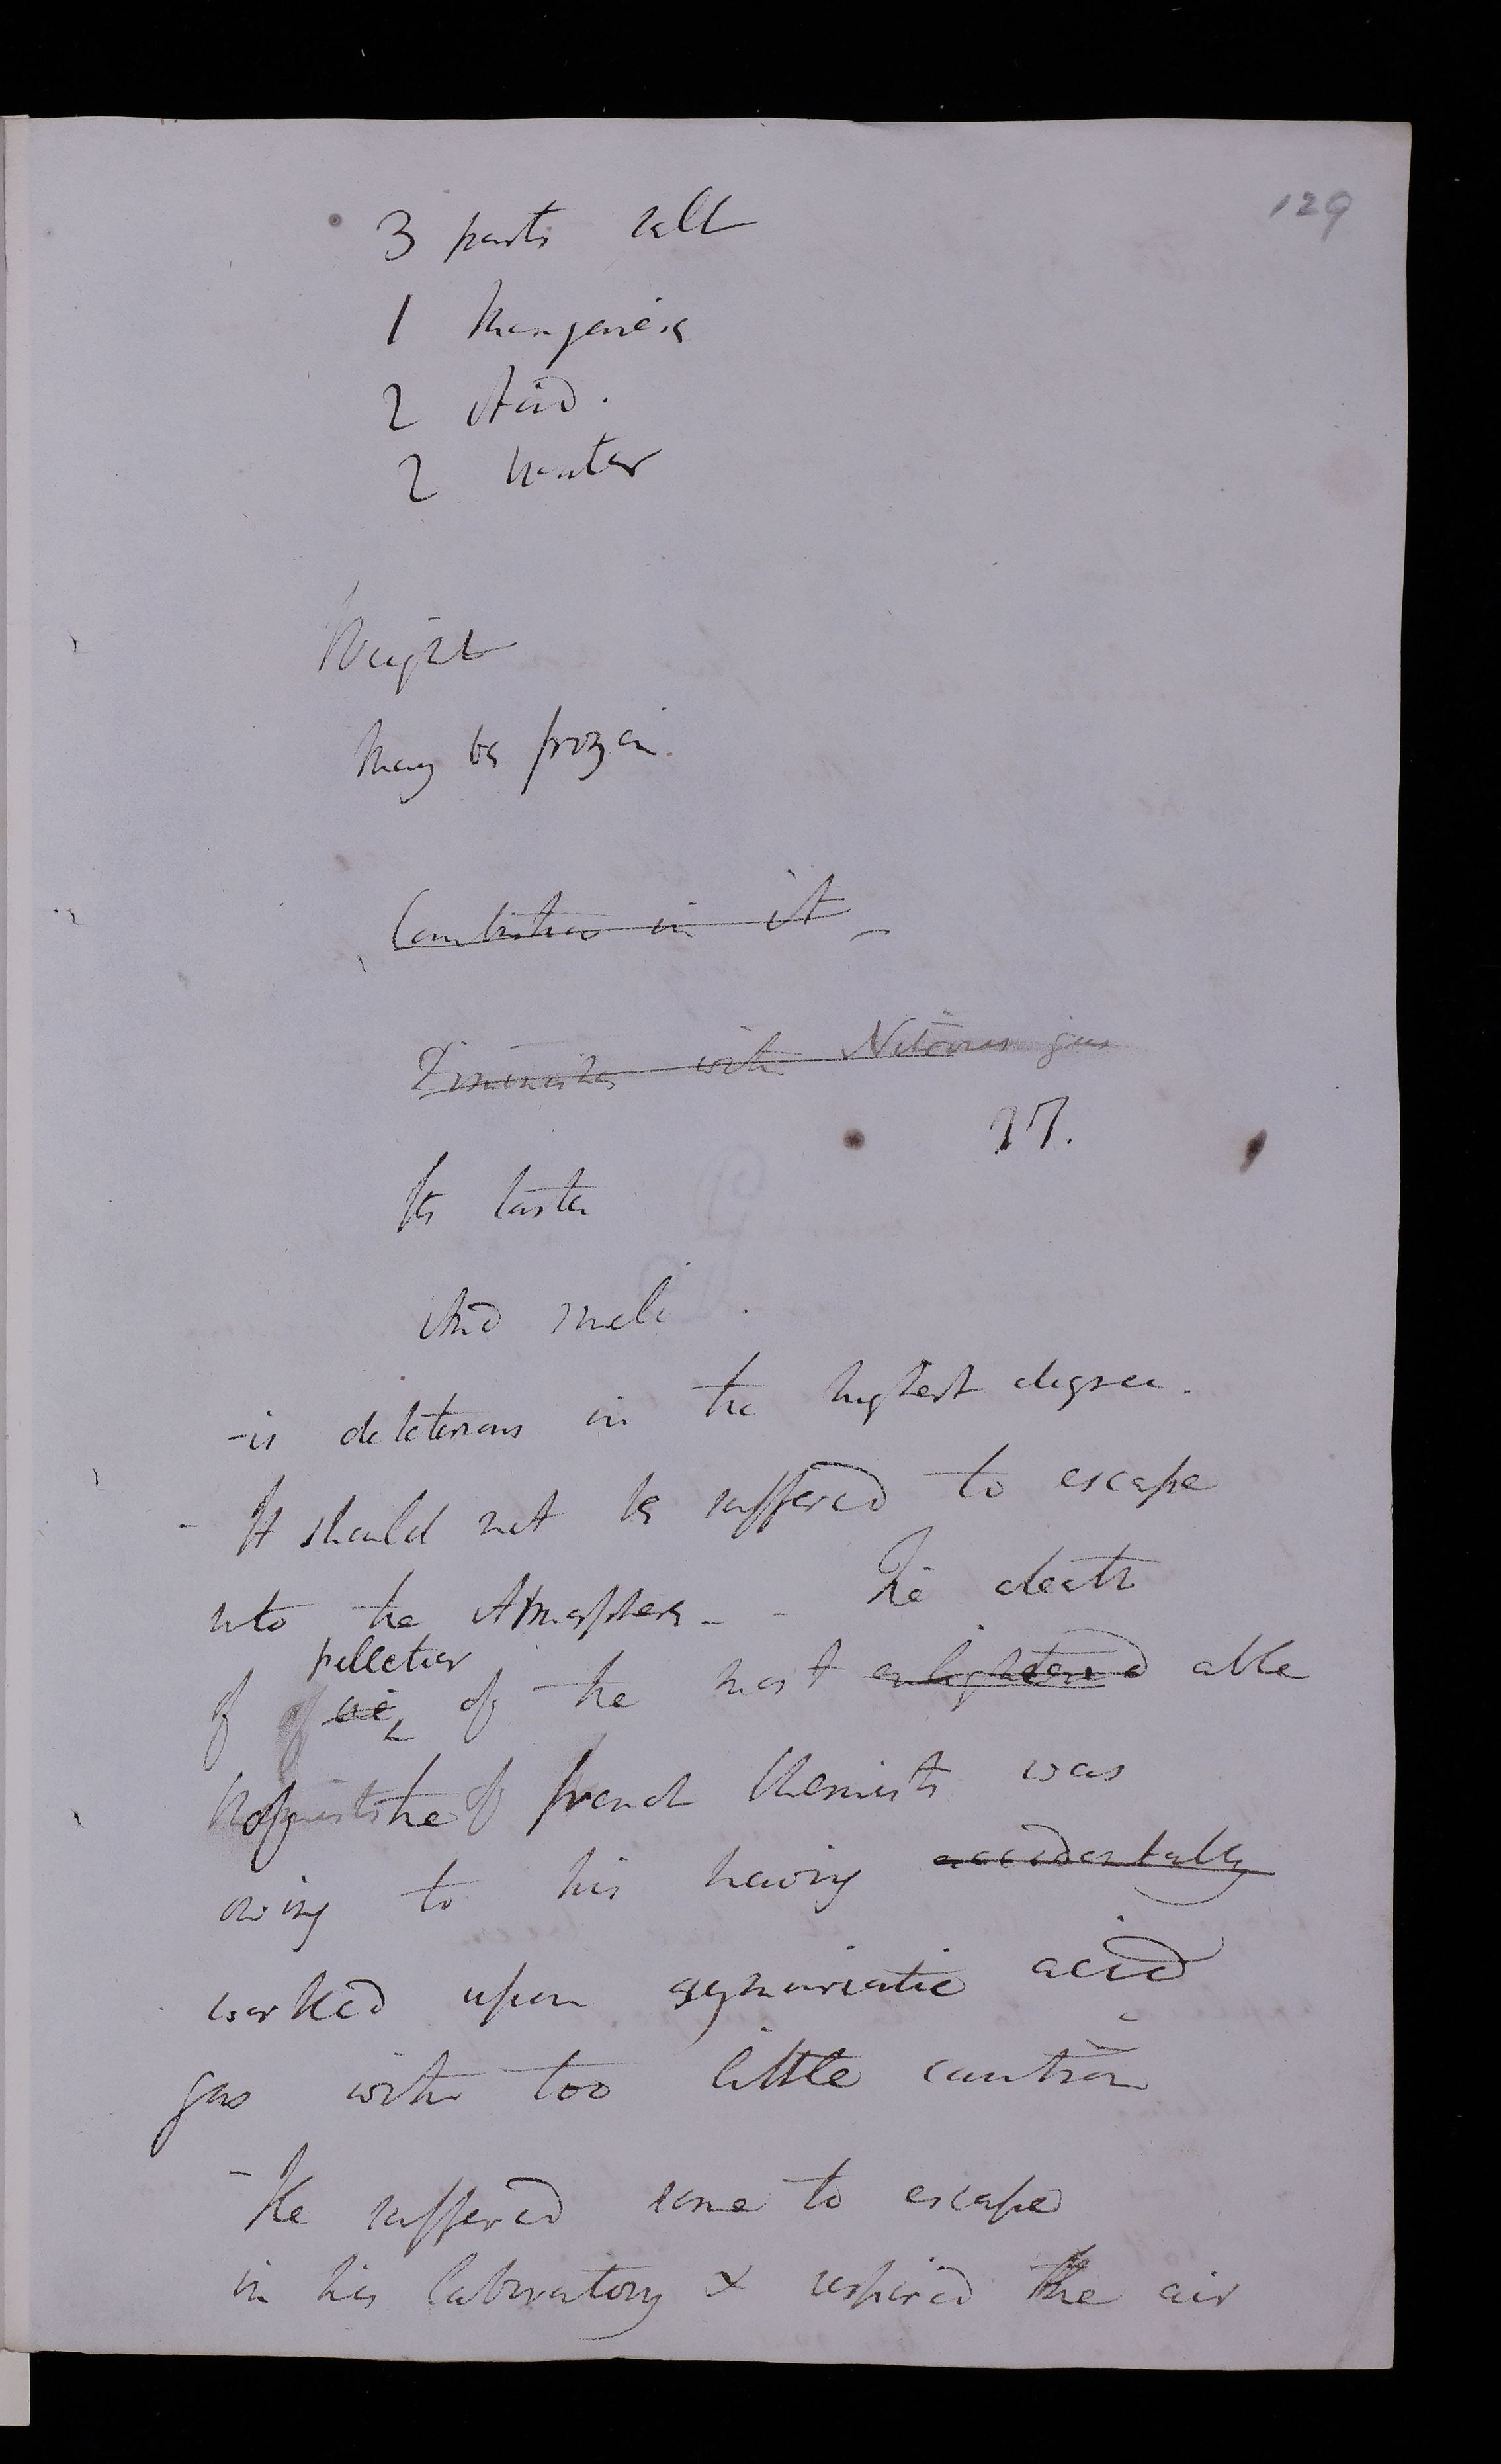 129
3 parts salt
1 Manganese
2 Acid.
2 Water
Weight
May be frozen.
Combustion in it -
Diminishes with Nitrous gas
27.
Its taste
And smell
- is deleterious in the highest degree.
- It should not be suffered to escape
into the Atmosphere - - The death
pelletier
of one of the most enlightened able
of the french Chemists was
owing to his having accidentally
worked upon oxymuriatic acid
gas with too little caution
- He suffered some to escape
in his laboratory & respired the air